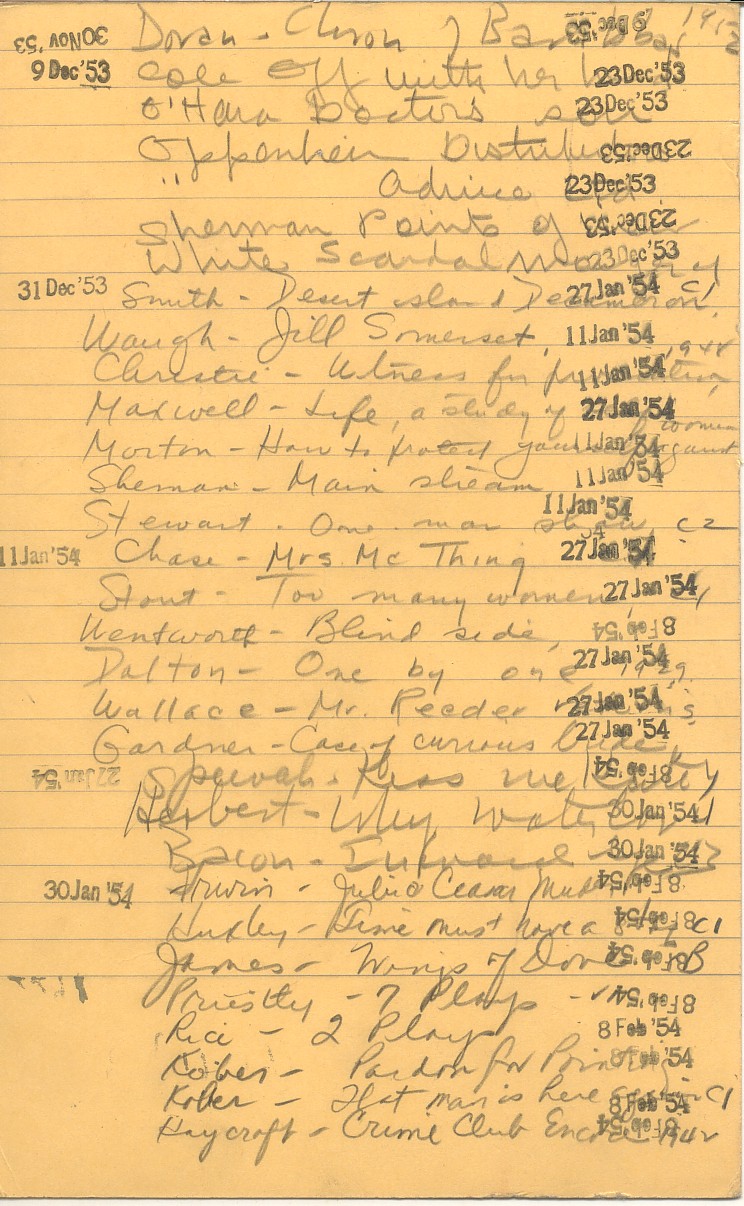 30 Nov '53 Doran - of Bar 9 Dec '53 1952
9 Dec '53 Cole Off with her h 23 Dec '53
O'Hara Doctor's son 23 Dec '53
Oppenheim 23 Dec '53
" advice 23 Dec '53
Sherman Points of 23 Dec '53
White Scandal 23 Dec '53
31 Dec '53 Smith - Desert island Decameron, C1 27 Jan '54
Waugh - Jill Somerset, 11 Jan '54
Christie - Witness for 11 Jan '54 1948
Maxwell - Life, a study of 27 Jan '54 women
Morton - How to protect yourself against 11 Jan '54
Sherman - Main stream 11 Jan '54
Stewart - One man show C2 11 Jan '54
11 Jan '54 Chase - Mrs Mc Thing 27 Jan '54
Stout - Too many women, C1 27 Jan '54
Wentworth - Blind side, 8 Feb '54
Dalton - One by one 1929. 27 Jan '54
Wallace - Mr. Reeder 27 Jan '54
Gardner - Case of curious bride, 27 Jan '54
27 Jan '54 Spewak - Kiss me Kate 8 Feb '54
Herbert - Why Waterloo 30 Jan '54
Bacon - Inward 30 Jan '54
30 Jan '54 Irwin - Julius Ceasar 8 Feb '54
Huxley - Time must have a stop C1 8 Feb '54
James - Wings of Dove B 8 Feb '54
Priestly - 7 Plays - 8 Feb '54
Rice - 2 Plays 8 Feb '54
Kober - Pardon for 8 Feb '54
Kober - That man is here again C1 8 Feb '54
Haycroft - Crime Club Encore 1942 8 Feb '54